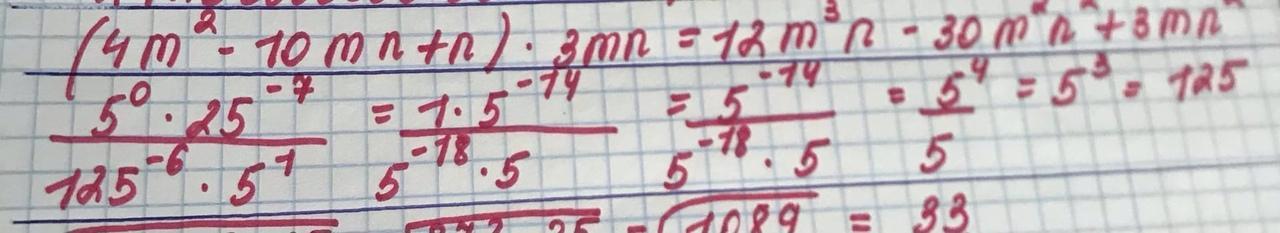 (4m² - 10mn + n) · 3mn = 12m³n - 30m²n² + 3mn²
5⁰ · 25⁻⁷ / 125⁻⁶ · 5¹ = 1 · 5⁻¹⁴ / 5⁻¹⁸ · 5 = 5⁻¹⁴ / 5⁻¹⁸ · 5 = 5⁴ / 5 = 5³ = 125
√1089 = 33